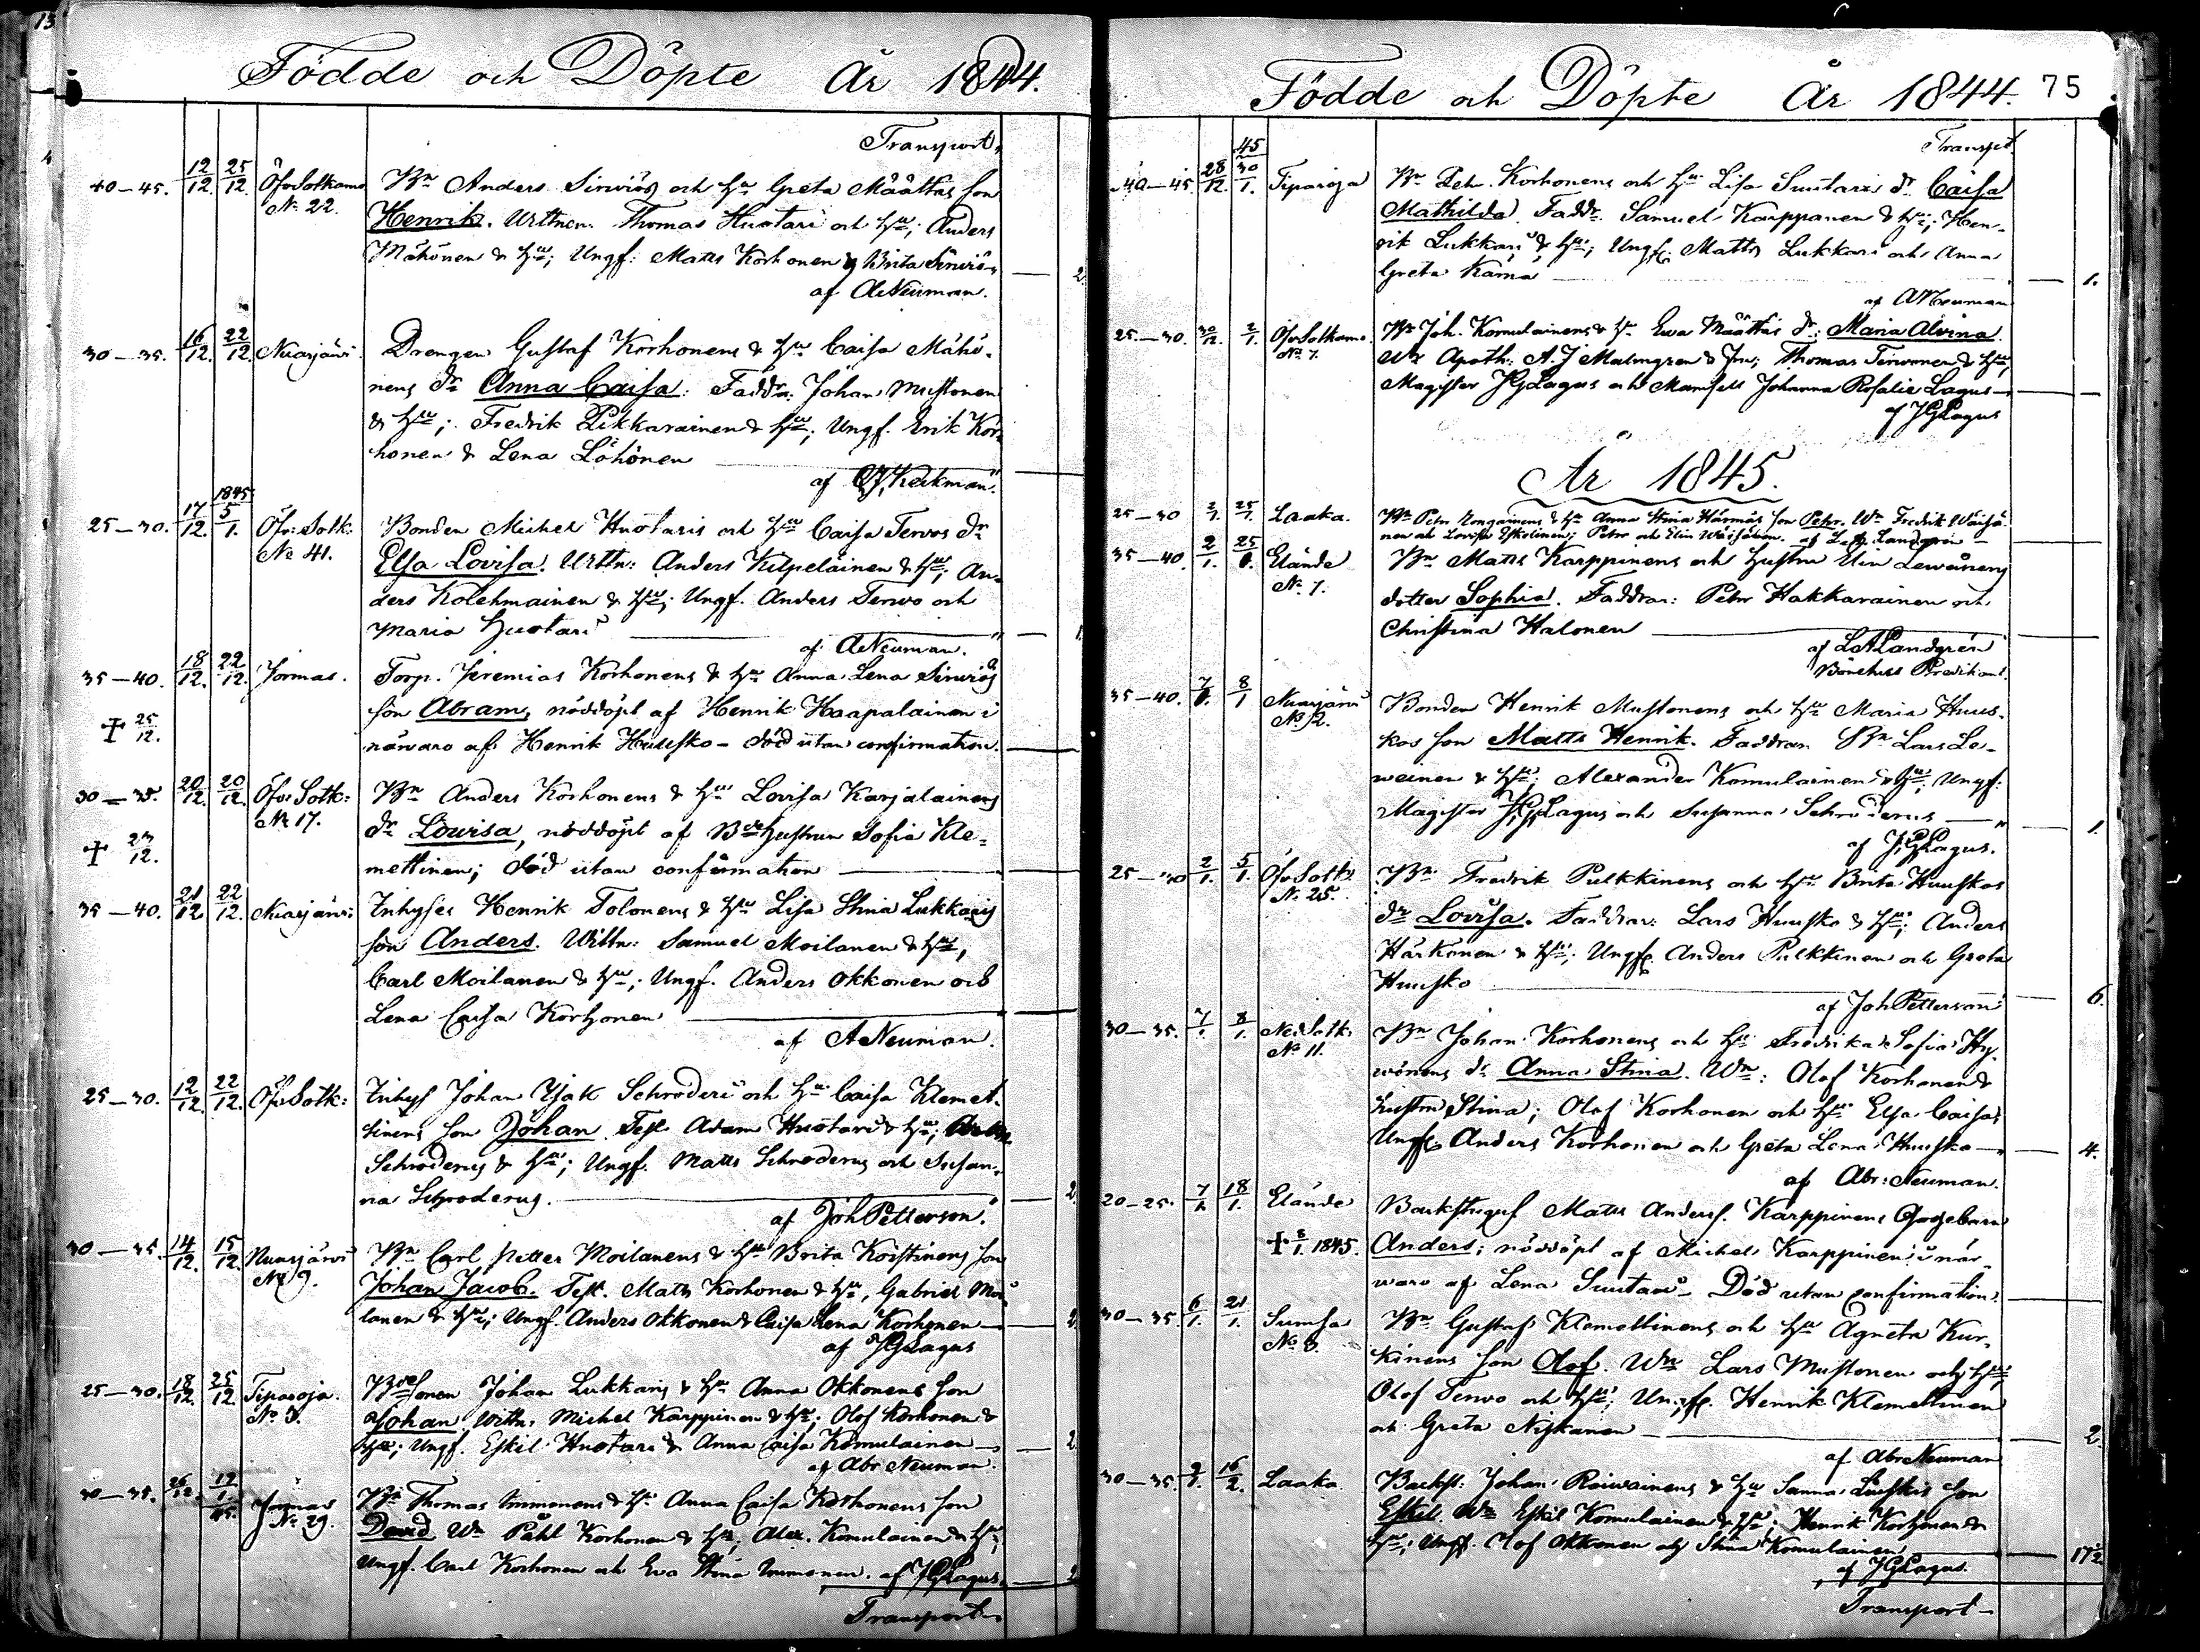 Födde och Döpte År 1844.
Transport
40-45. 12/12. 25/12. Öfv Sotkamo Bn Anders Sirviös och Hu Greta Määttäs son
No 22. Henrik. Wittnen: Thomas Huotari och Hu; Anders
Mähönen & Hu; Ungf: Matts Korhonen & Brita Sirviö
af A Neuman.
30-35. 16/12. 22/12. Nuasjärvi Drengen Gustaf Korhonens & Hu Caisa Mähö-
nens dr Anna Caisa. Faddr. Johan Mustonen
& Hu; Fredrik Pikkarainen & Hu; Ungf. Erik Kor-
honen & Lena Löhönen
af
25-30. 17/12. 1845 5/1. Öfv: Sotk: Bonden Michel Huotaris och Hu Caisa Tervos dr
No 41. Elsa Lovisa. Wittn: Anders Kilpeläinen & Hu; An-
ders Kolehmainen & Hu; Ungf. Anders Tervo och
Maria Huotari
af A Neuman.
35-40. 18/12. 22/12. Jormas. Torp. Jeremias Korhonens & Hu Anna Lena Sirviös
† 25/12. son Abram, nöddöpt af Henrik Haapalainen i
närvaro af Henrik Huusko - död utan confirmation.
30-35. 20/12. 20/12. Öfv: Sotk: Bn Anders Korhonens & Hu Lovisa Karjalainens
No 17. dr Lovisa, nöddöpt af Bde hustrun Sofia Kle-
† 27/12. mettinen; död utan confirmation
35-40. 21/12 22/12. Nuasjärvi: Inhyses Henrik Tolonens & Hu Lisa Stina Lukkaris
son Anders. Wittn: Samuel Moilanen & Hu,
Carl Moilanen & Hu; Ungf. Anders Okkonen och
Lena Caisa Korhonen
af A Neuman.
25-30. 12/12. 22/12. Öfv Sotk: Inhys Johan Isak Schroderi och Hu Caisa Klemet-
tinens son Johan. Test. Adam Huotari & Hu;
Schroderus & Hu; Ungf. Matts Schroderus och Susan-
na Schroderus. 2
af Joh Petterson.
30-35. 14/12. 15/12. Nuasjärvi Bn Carl Petter Moilanens & Hu Brita Koistinens son
No 9. Johan Jacob. Test. Matts Korhonen & Hu, Gabriel Moi-
lanen & Hu; Ungf. Anders Okkonen & Caisa Lena Korhonen
af JGLagus
25-30. 18/12. 25/12. Tipasoja. Bdesonen Johan Lukkaris & Hu Anna Okkonens son
Johan. Wittn. Michel Karppinen & Hu; Olof Korhonen &
Hu; Ungf. Eskil Huotari & Anna Caisa Komulainen 2
af Abr Neuman.
30-35. 26/12. Jormas Bn Thomas Immonens & Hu Anna Caisa Korhonens son
No 29. David Wn Påhl Korhonen & Hu; Alex. Komulainen & Hu;
Ungf. Carl Korhonen och Eva Stina Immonen. af JGLagus.
Transport
Födde och Döpte År 1844. 75
Transpt
40-45. 28/12. 45 30/1. Tipasoja Bn Petr. Korhonens och Hu Lisa Suutaris dr Caisa
Mathilda. Faddr. Samuel Karppanen & Hu; Hen-
rik Lukkari & Hu; Ungf. Matts Lukkari och Anna
Greta Kämä 1.
af A Neuman
25-30. 30/12. 2/1. Öfv Sotkamo Bn Joh. Komulainens & Hu Eva Määttäs dr: Maria Alvina.
No 7. Wn Apoth: A. J Malmgren & Fru; Thomas Tervonen & Hu;
Magister JGLagus och Mamsell Johanna Rosalie Lagus
af JGLagus
År 1845.
25-30 2/1. 25/1. Laaka. Bn Petr Rongainens & Hu Anna Stina Härmäs son Petr. Wn Fredrik Väisä-
nen och Lovisa Eskelinen; Petr och Elin Väisänen. af L A Landgren
35-40. 2/1. 25/1. Elände Bn Matts Karppinens och hustru Elin Levänens
No 7. dotter Sophia. Faddrar: Petr Hakkarainen och
Christina Halonen
af LALandgrén
Bönehus Predikant.
35-40. 7/1. 8/1 Nuasjärvi Bonden Henrik Mustonens och Hu Maria Huus-
No 12. kos son Matts Henrik. Faddrar Bn Lars Le-
veinen & Hu; Alexander Komulainen & Hu; Ungf:
Magister JGLagus och Susanna Schroderus 1.
af JGLagus.
25-30 2/1. 5/1. Öfv Sotk: Bn Fredrik Pulkkinens och Hu Brita Huuskos
No 25. dr Lovisa. Faddrar: Lars Huusko & Hu; Anders
Härkönen & Hu; Ungf. Anders Pulkkinen och Greta
Huusko 6.
af Joh Petterson
30-35. 7/1. 8/1. Ned Sotk. Bn Johan Korhonens och Hu Fredrika Sofia Hy-
No 11. vönens dr Anna Stina. Wn: Olof Korhonen &
hustru Stina; Olof Korhonen och Hu Elsa Caisa;
Ungf. Anders Korhonen och Greta Lena Huusko 4.
af Abr: Neuman.
20-25. 7/1. 18/1. Elände Backstugus Matts Anders. Karppinens
† 8/1. 1845. Anders; nöddöpt af Michel Karppinen i när-
varo af Lena Suutari - Död utan confirmation.
30-35. 6/1. 21/1. Sumsa Bn Gustaf Klemettinens och Hu Agneta Kur-
No 8. kinens son Olof. Wn Lars Mustonen och Hu;
Olof Tervo och Hu; Ungf. Henrik Klemettinen
och Greta Nykänen 2.
af Abr Neuman
30-35. 16/2. Laaka Backst. Johan Raivainens & Hu Sanna son
Eskil Wn Eskil Komulainen & Hu; Henrik Korhonen &
Hu; Ungf. Olof Okkonen och Stina Komulainen
af JGLagus.
Transport